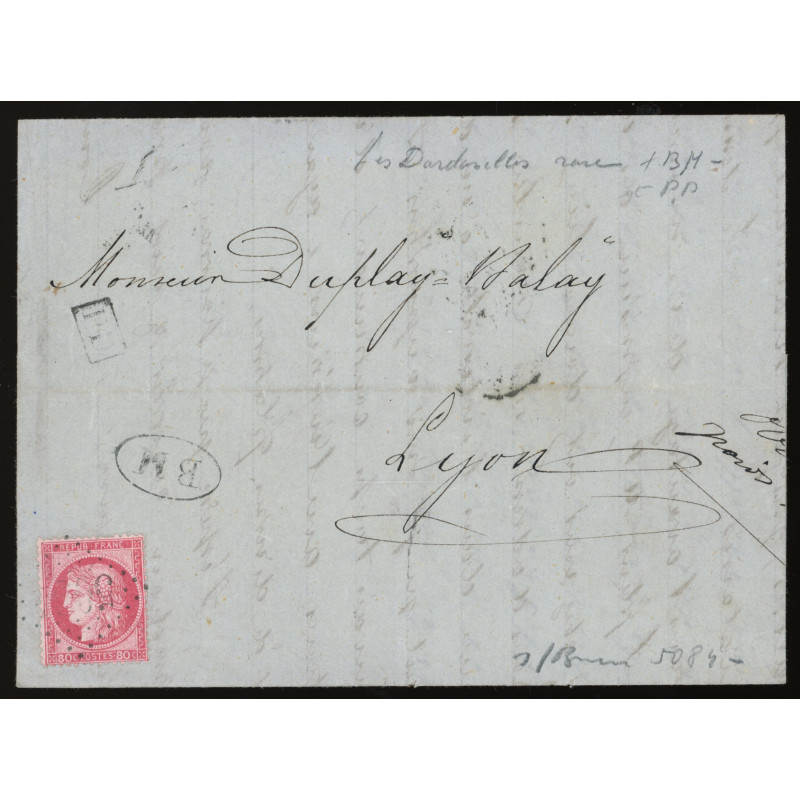 Les Dardanelles rare + BM -
PP
Monsieur Duplay=Balay
Lyon
BM
REPUB FRANC
80 POSTES 80
5084 -